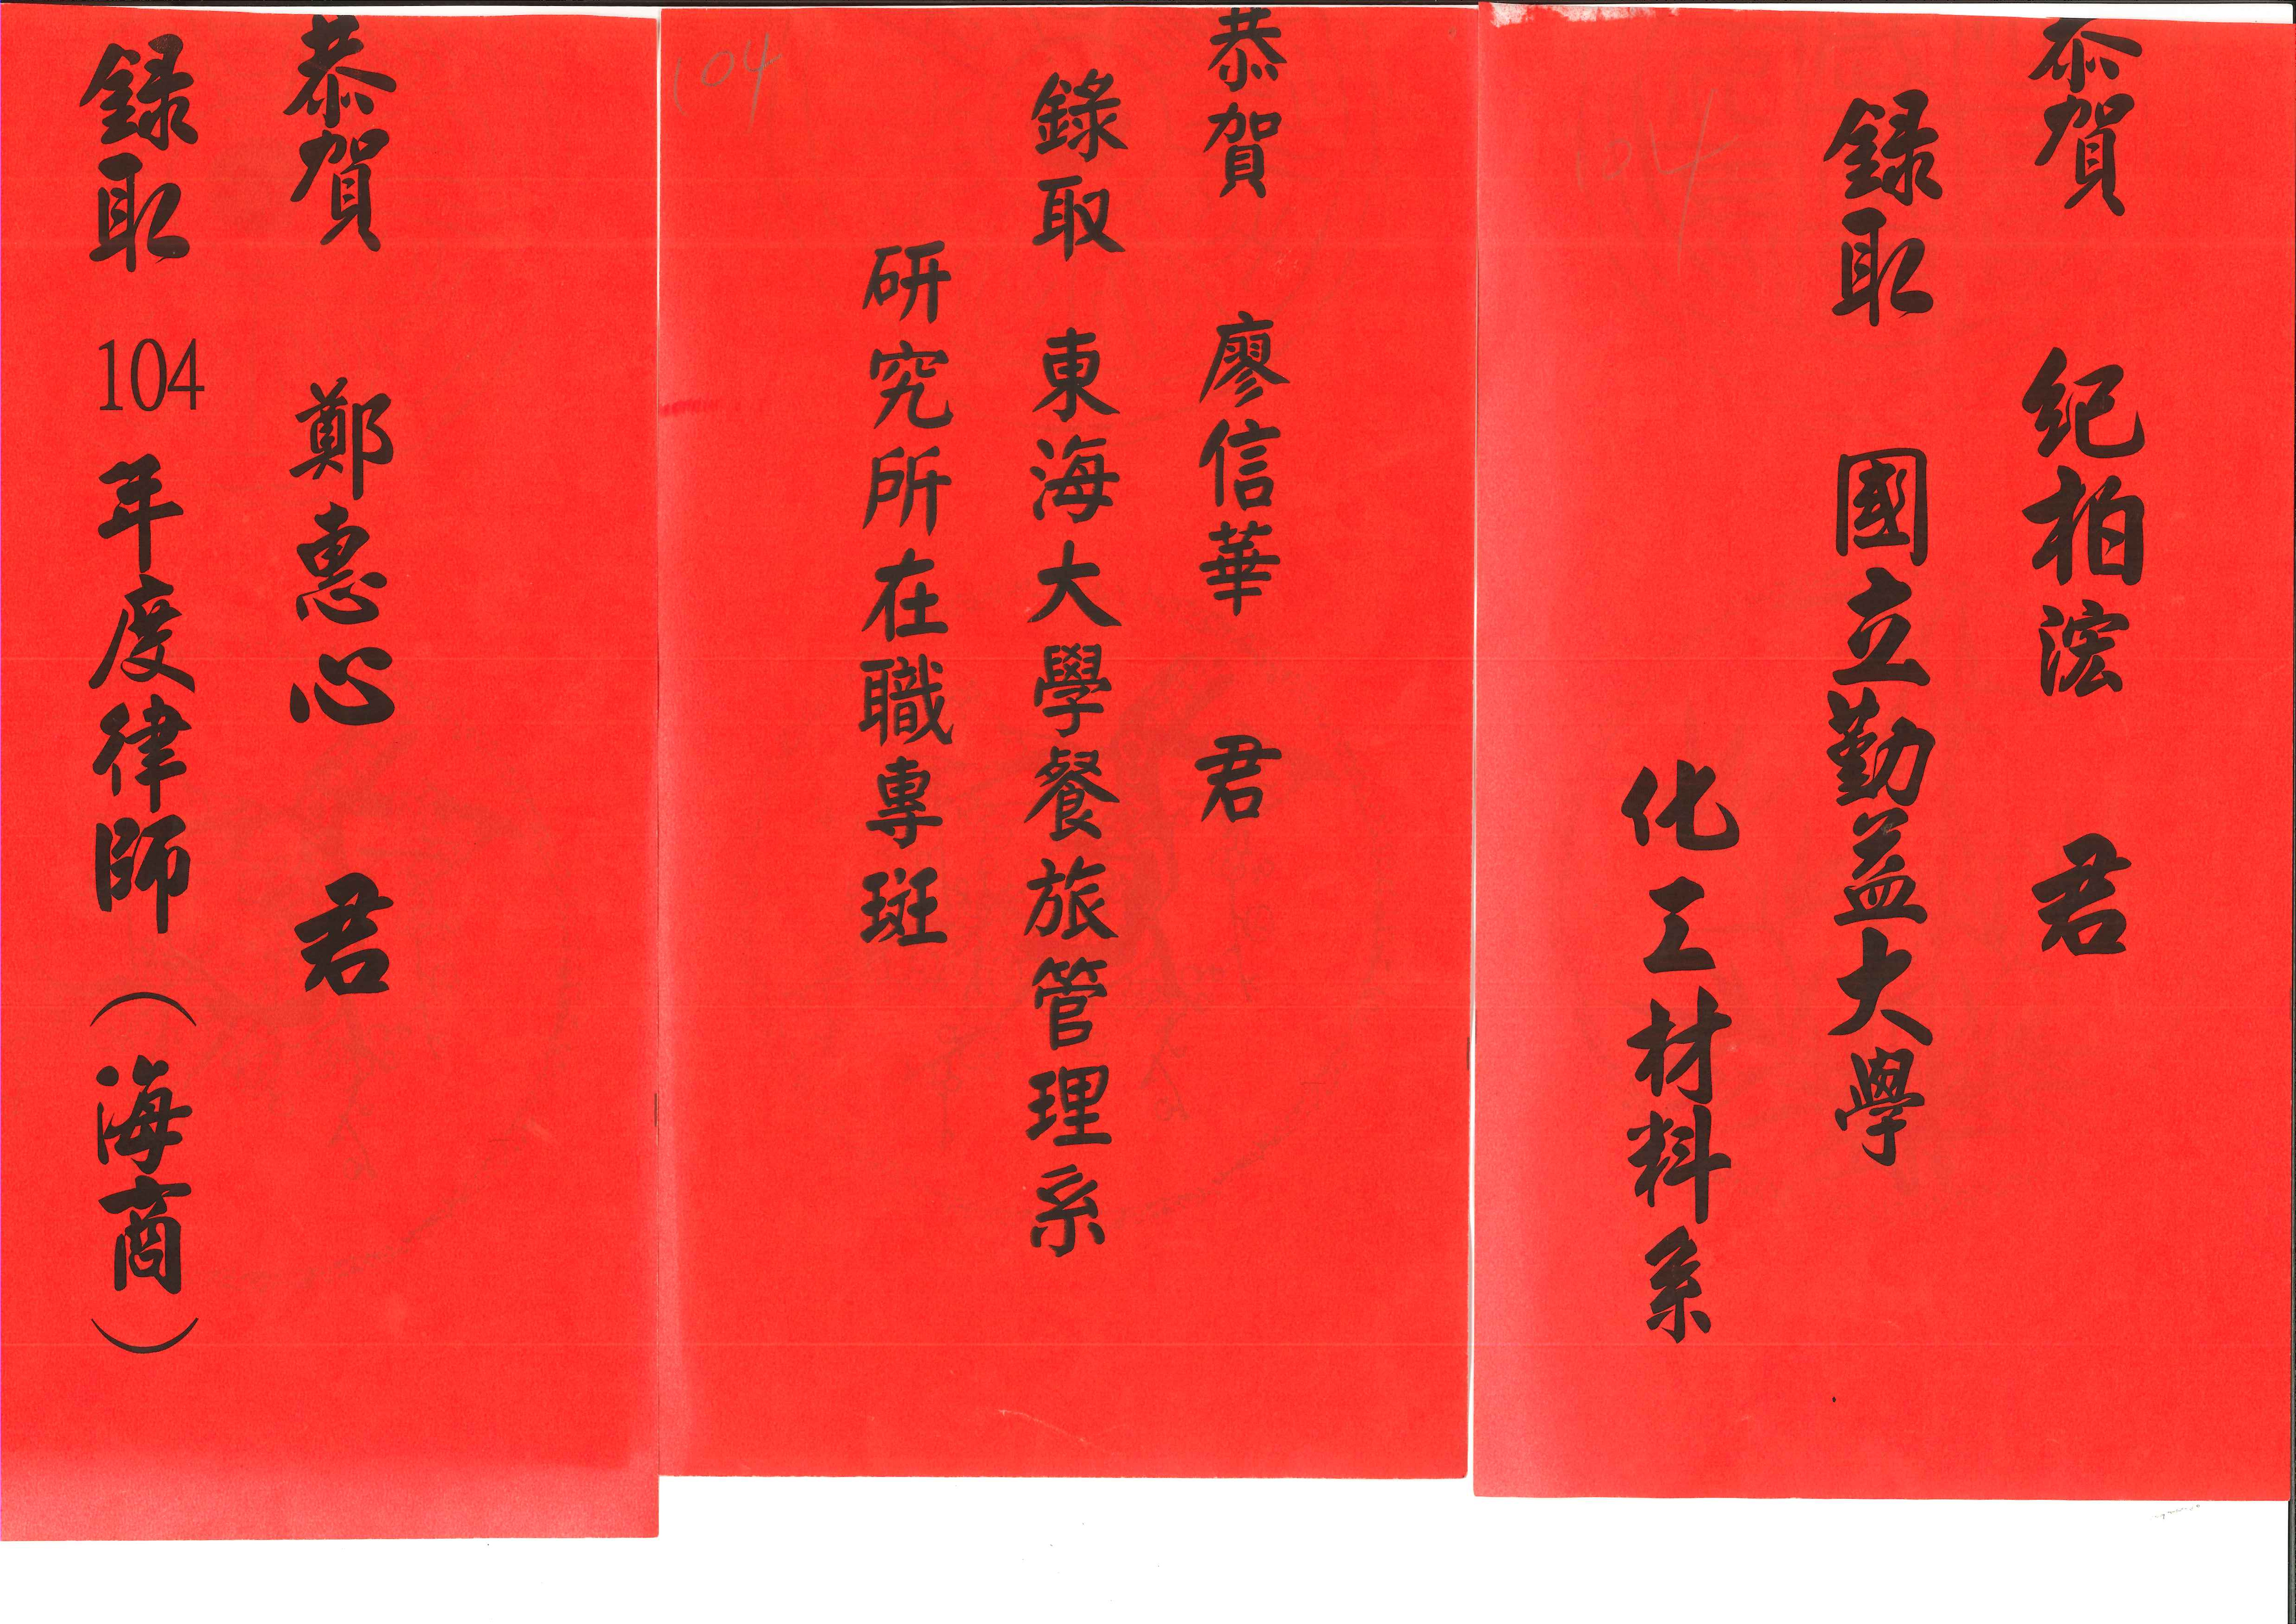 恭賀 紀柏浤 君
錄取 國立勤益大學
化工材料系
104
恭賀 廖信華 君
錄取 東海大學餐旅管理系
研究所在職專斑
104
恭賀 鄭惠心 君
錄取 104 年度律師（海商）